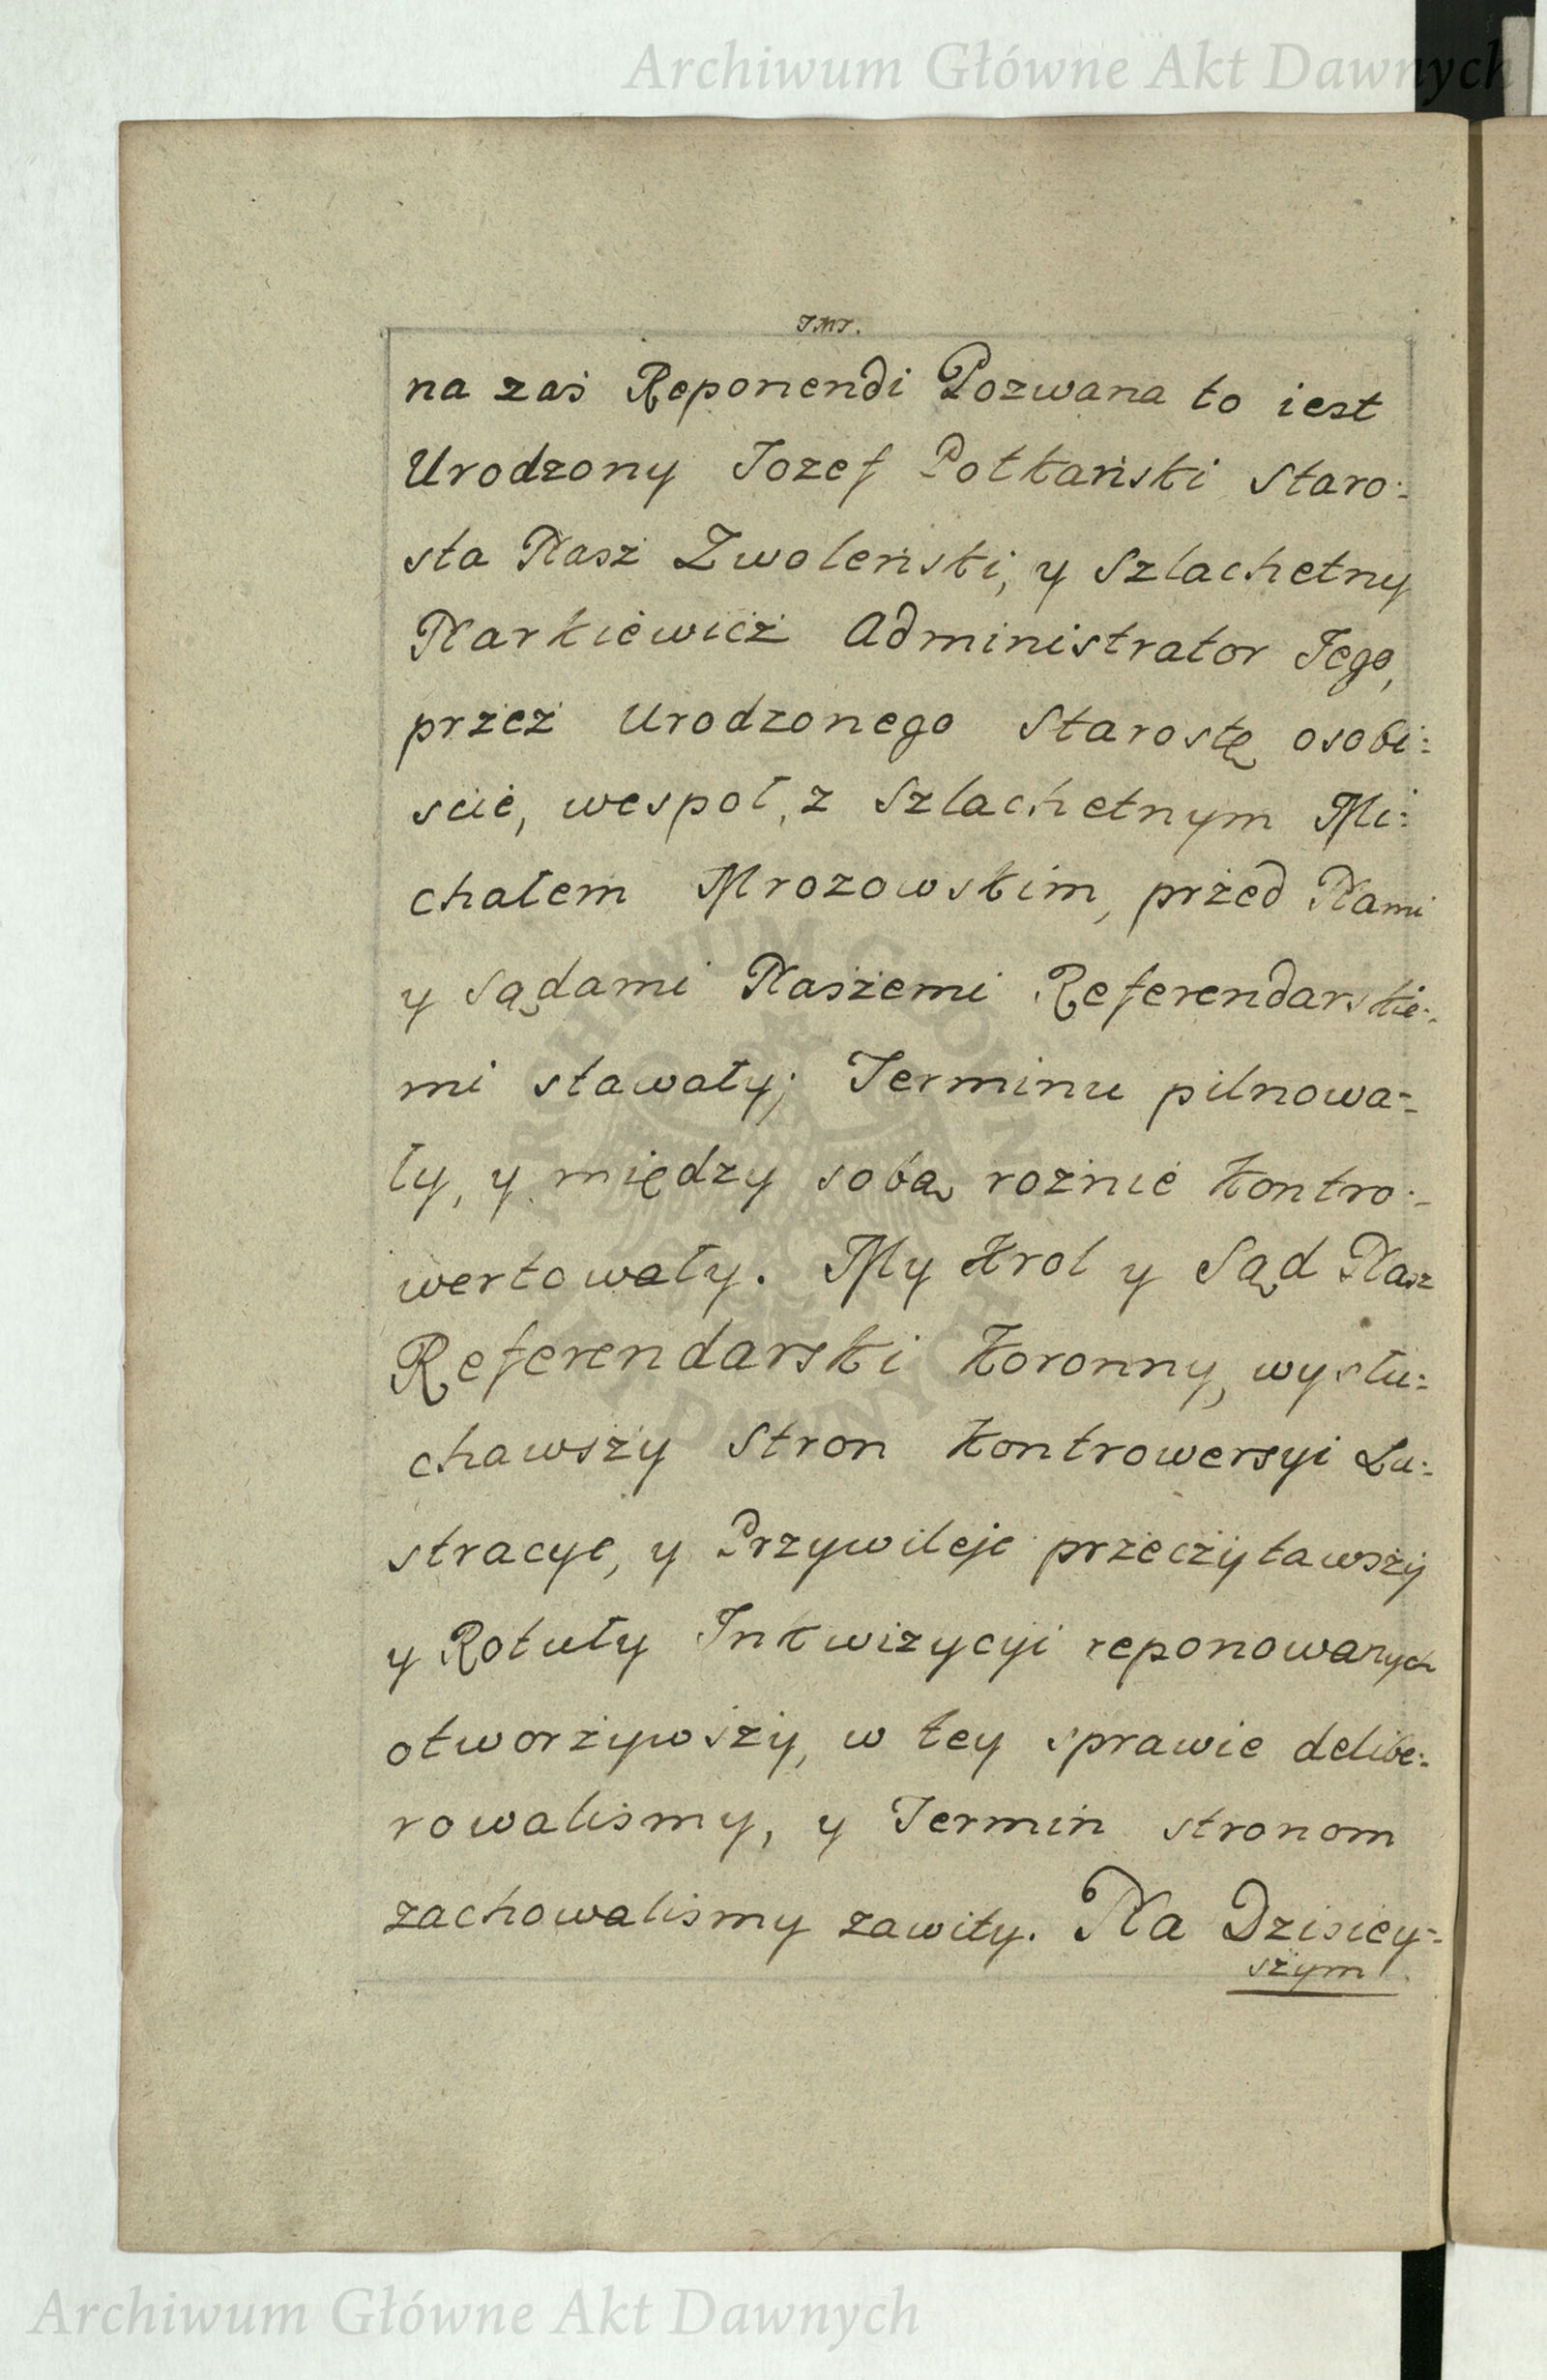 Archiwum Główne Akt Dawnych
na zaś Reponendi Pozwana to iest
Urodzony Jozef Potkański Staro:
sta Nasz Zwoleński, y Szlachetny
Narkiewicz Administrator Jego,
przez Urodzonego Starostę osobi:
scie, wespoł, z Szlachetnym Mi:
chałem Mrozowskim, przed Nami
y Sądami Naszemi Referendarskie:
mi stawały; Terminu pilnowa:
ły, y między sobą rożnie kontro:
wertowały. My Krol y Sąd Nasz
Referendarski Koronny, wysłu:
chawszy Stron Kontrowersyi Lu:
stracye, y Przywileje przeczytawszy
y Rotuły Inkwizycyi reponowanych
otworzywszy, w tey sprawie delibe:
rowalismy, y Termin stronom
zachowalismy zawity. Na Dzisiey:
szym
ARCHIWUM GŁÓWNE
AKT DAWNYCH
Archiwum Główne Akt Dawnych